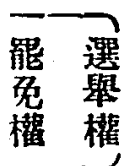 選舉權
罷免權